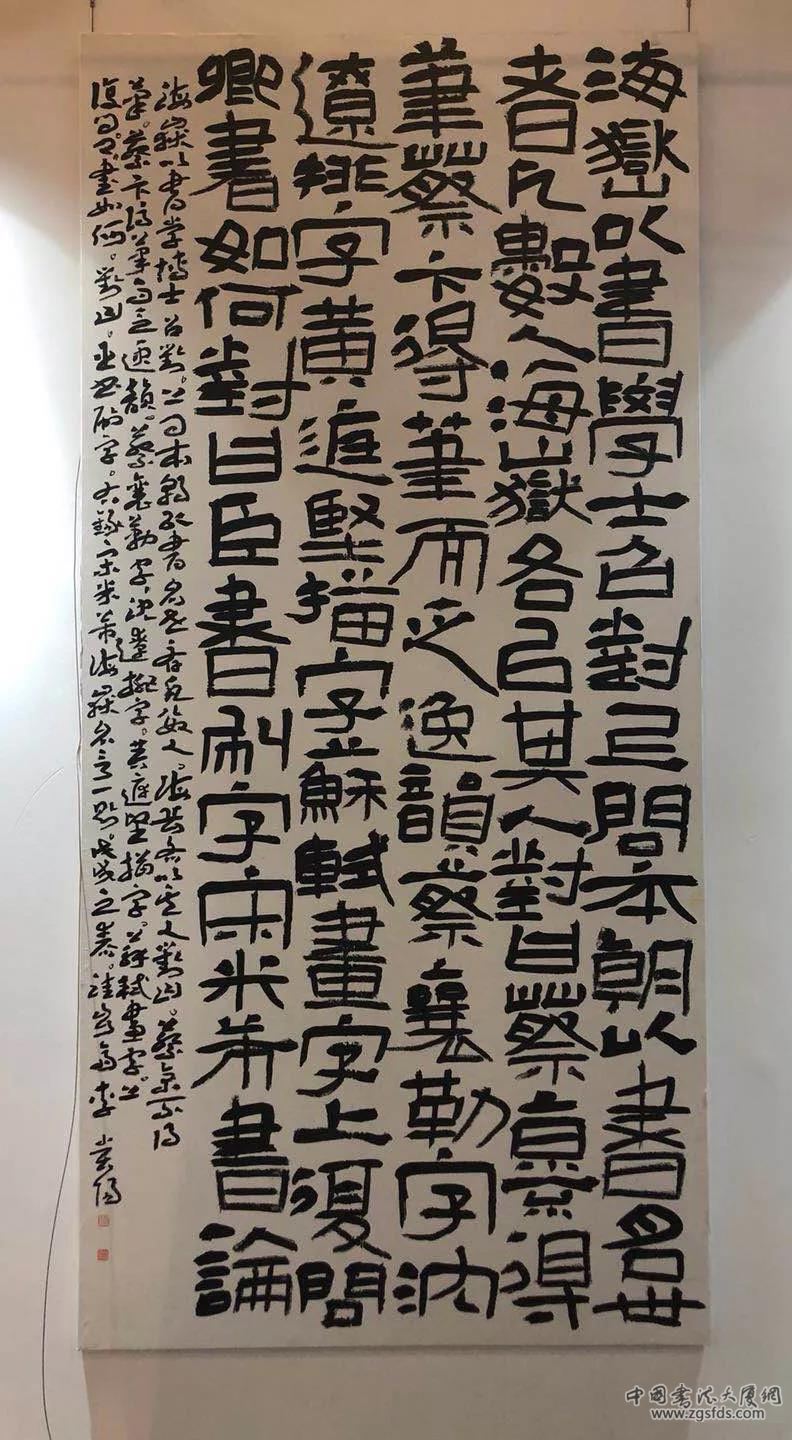 海嶽以書學士召對問本朝以書名世
者凡數人海嶽各㠯其人對曰蔡京不得
筆蔡卞得筆而乏逸韻蔡襄勒字沈
遼排字黃庭堅描字蘇軾畫字上復問
卿書如何對曰臣書刷字宋米芾書論
海嶽以書學博士召對。上問本朝以書名世者凡數人。海嶽各以其人對曰。蔡京不得
筆。蔡卞得筆而乏逸韻。蔡襄勒字。沈遼排字。黃庭堅描字。蘇軾畫字。上
復問。卿書如何。對曰。臣書刷字。右錄宋米芾海嶽名言一則。戊戌之春。李
中國書法大廈網
www.zgsfds.com